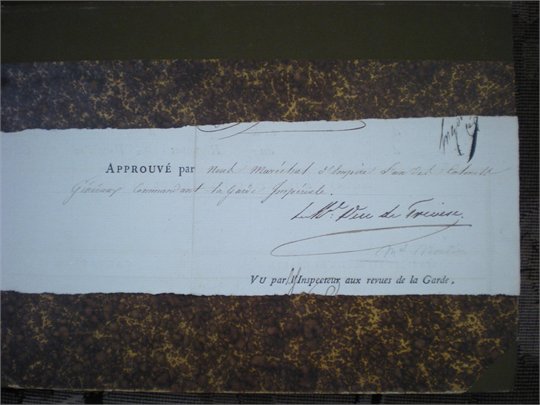 APPROUVÉ par nous Maréchal d'Empire l'un des Colonels
Généraux Commandant la Garde Impériale.
Le Mal. Duc de Trévise
VU par l'Inspecteur aux revues de la Garde,